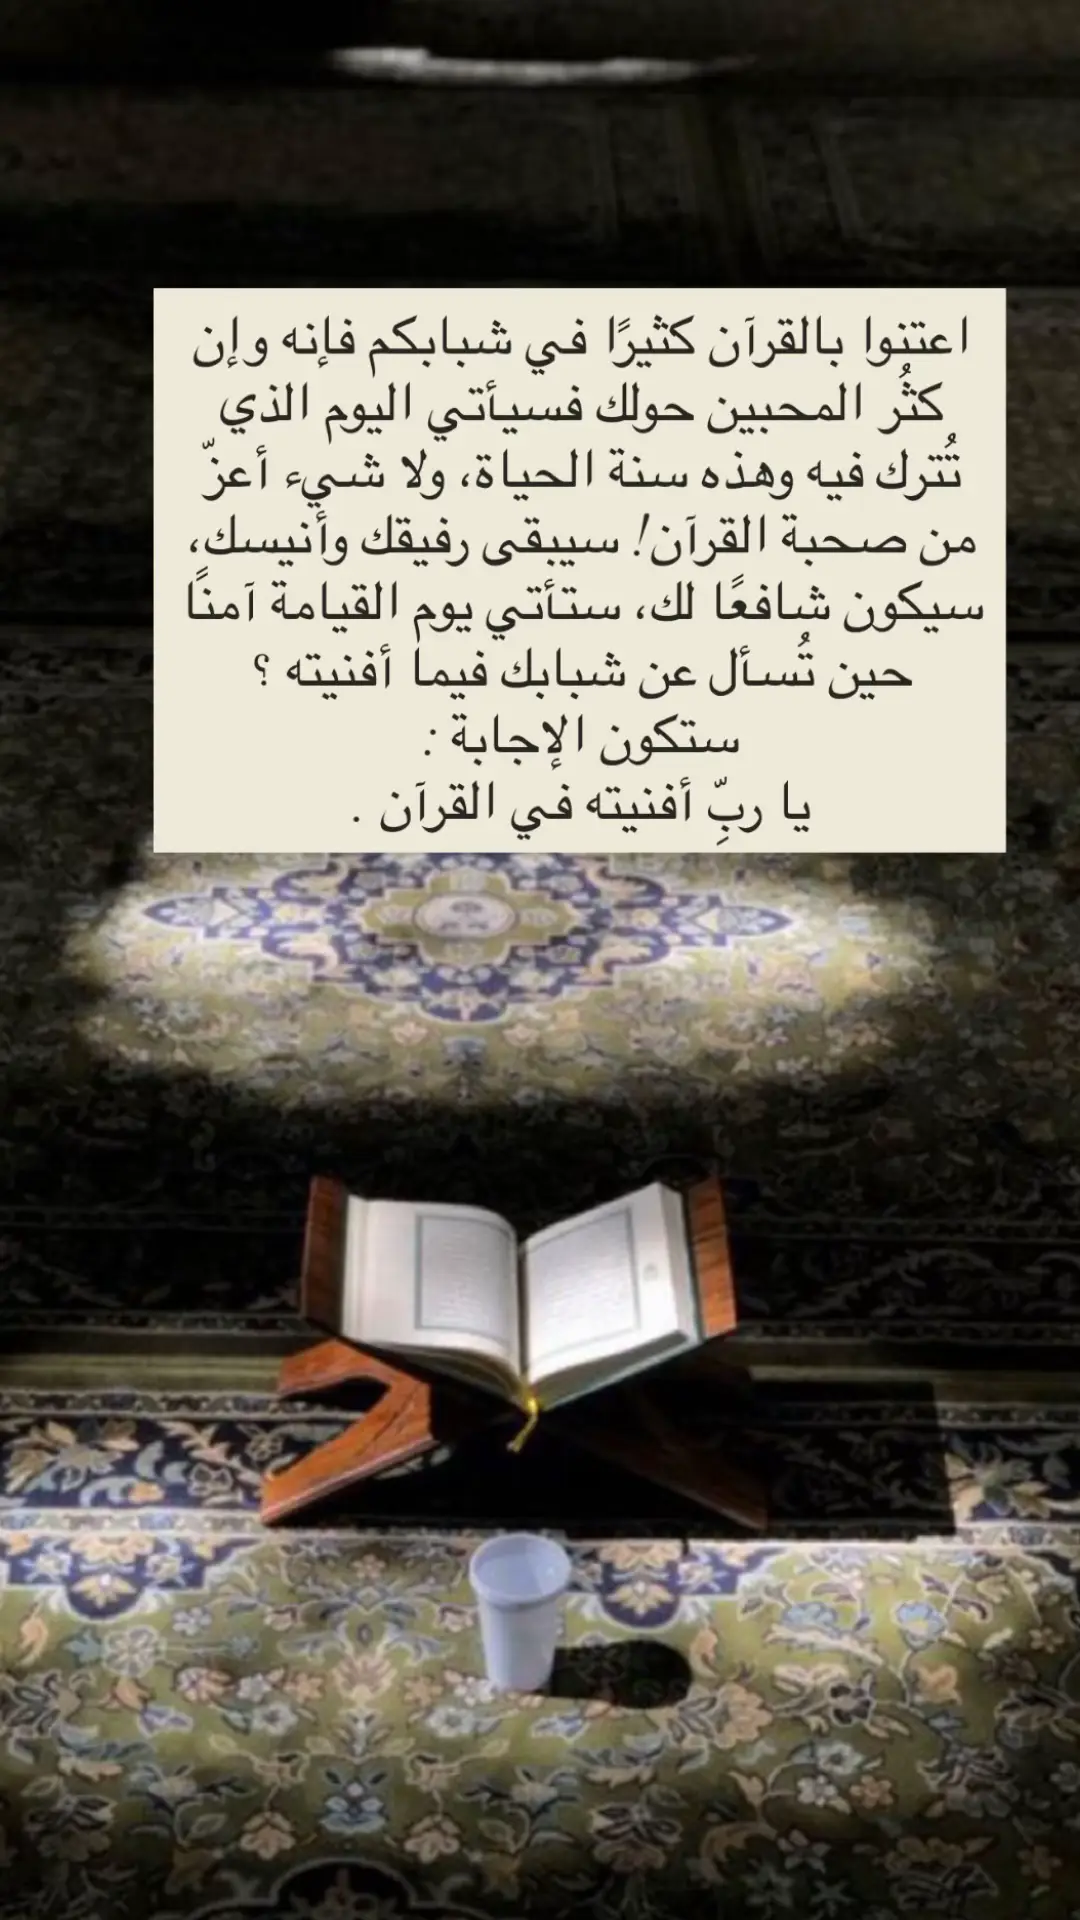 اعتنوا بالقرآن كثيرًا في شبابكم فإنه وإن
كثُر المحبين حولك فسيأتي اليوم الذي
تُترك فيه وهذه سنة الحياة، ولا شيء أعزّ
من صحبة القرآن! سيبقى رفيقك وأنيسك،
سيكون شافعًا لك، ستأتي يوم القيامة آمنًا
حين تُسأل عن شبابك فيما أفنيته ؟
ستكون الإجابة :
يا ربِّ أفنيته في القرآن .